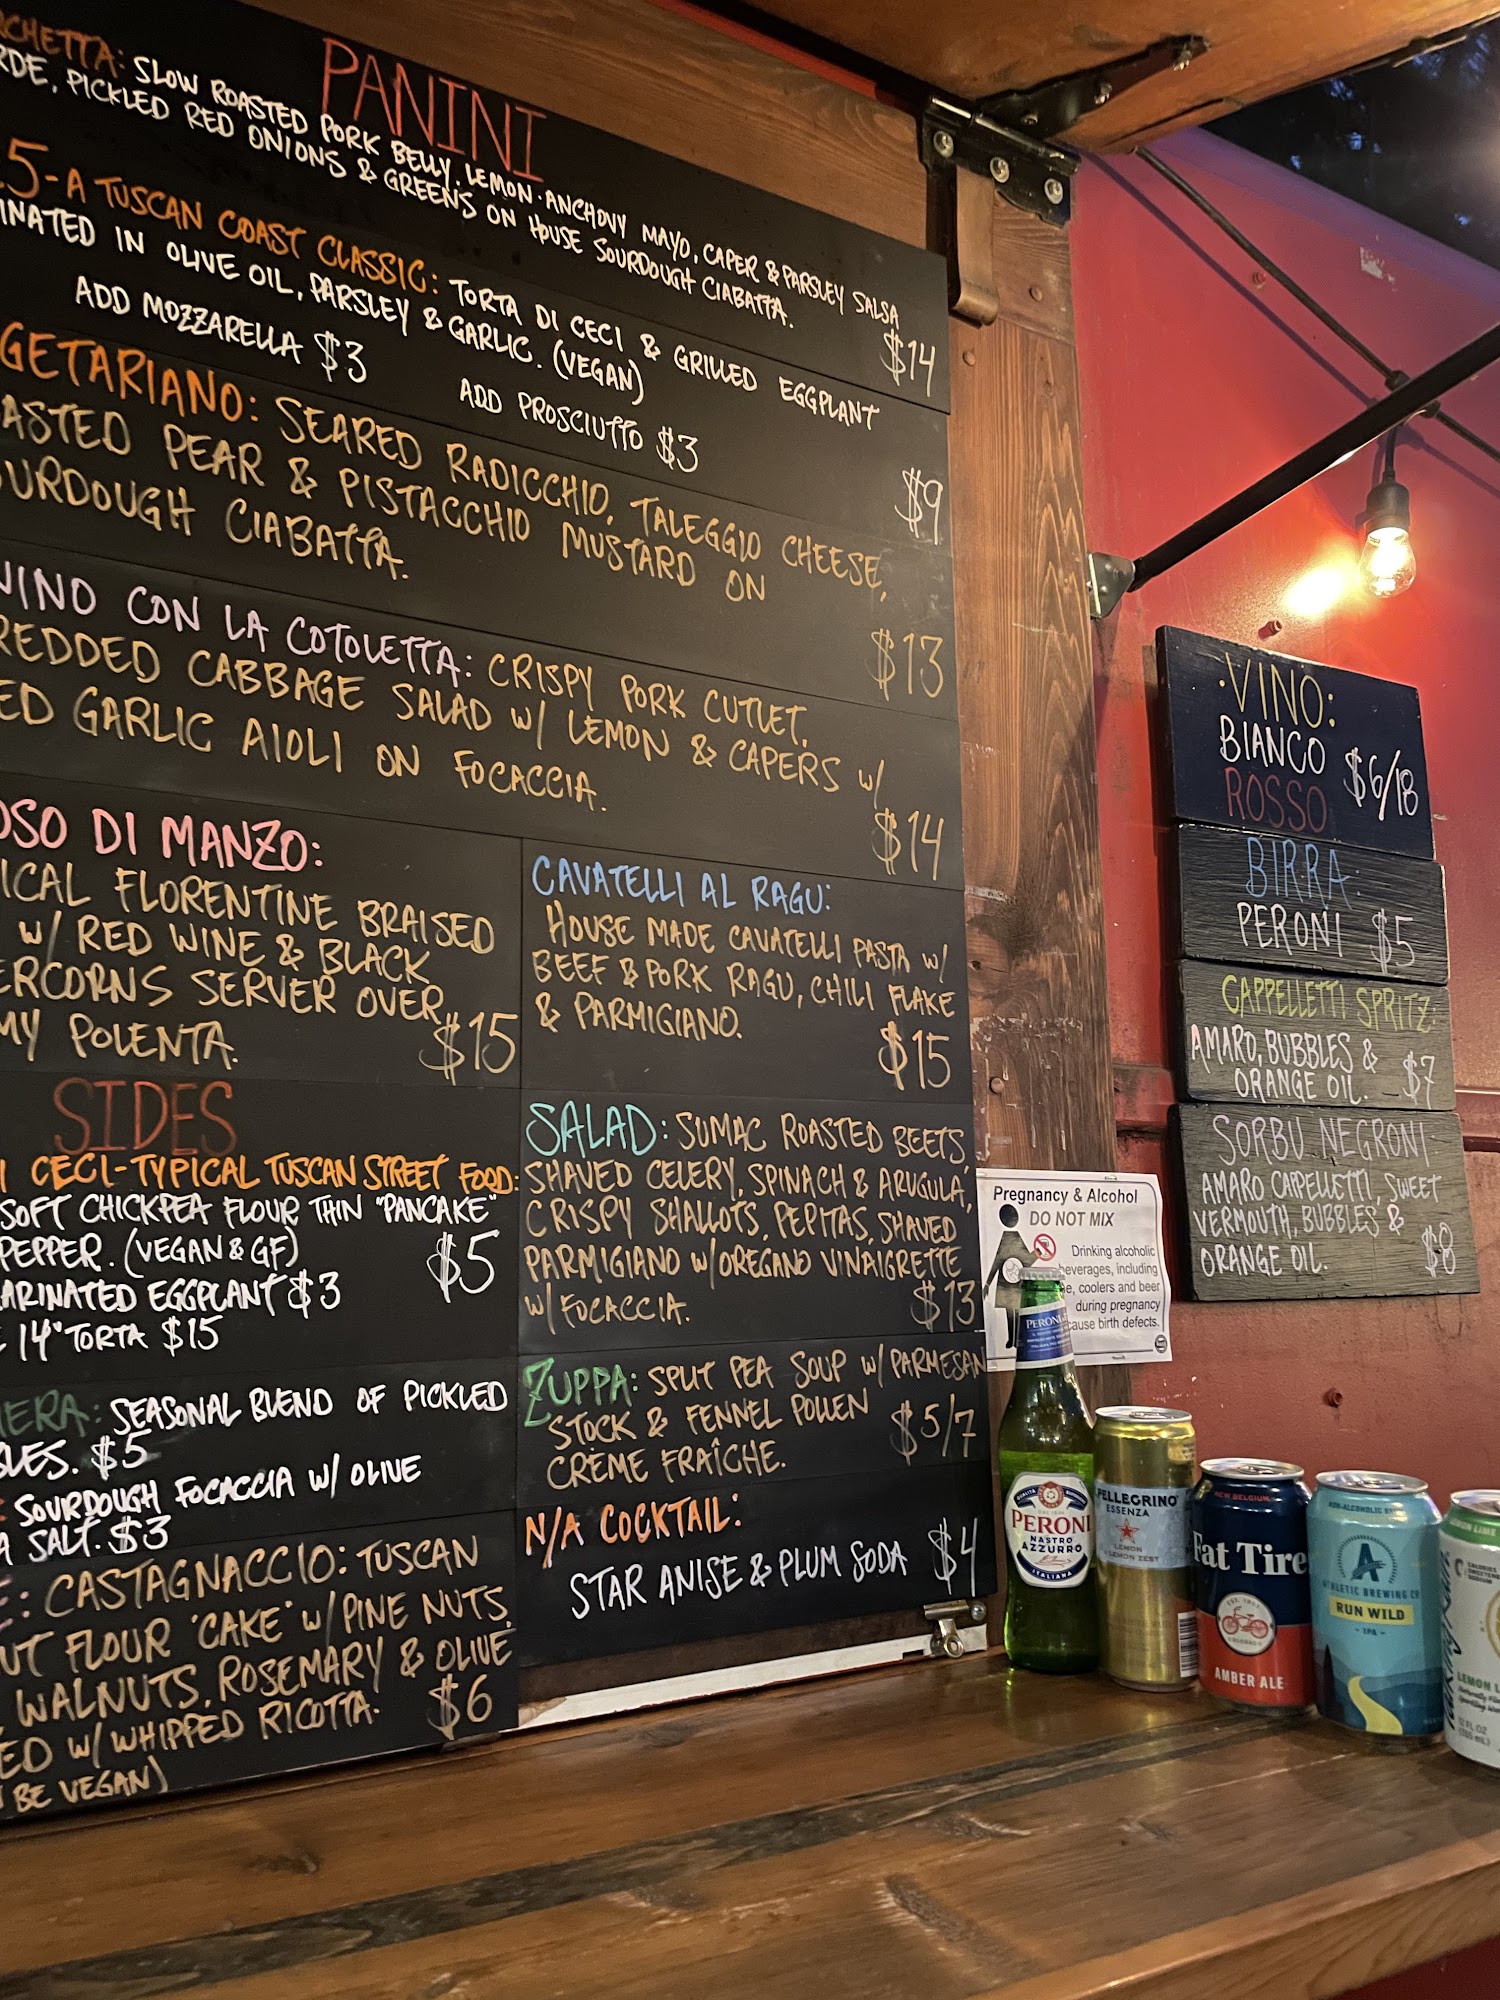 PANINI
CHETTA: SLOW ROASTED PORK BELLY, LEMON-ANCHOVY MAYO, CAPER & PARSLEY SALSA
RDE, PICKLED RED ONIONS & GREENS ON HOUSE SOURDOUGH CIABATTA.
$14
5-A TUSCAN COAST CLASSIC: TORTA DI CECI & GRILLED EGGPLANT
INATED IN OLIVE OIL, PARSLEY & GARLIC. (VEGAN)
ADD MOZZARELLA $3 ADD PROSCIUTTO $3
$9
GETARIANO: SEARED RADICCHIO, TALEGGIO CHEESE,
ASTED PEAR & PISTACCHIO MUSTARD ON
URDOUGH CIABATTA.
$13
NINO CON LA COTOLETTA: CRISPY PORK CUTLET,
REDDED CABBAGE SALAD W/ LEMON & CAPERS W/
ED GARLIC AIOLI ON FOCACCIA.
$14
OSO DI MANZO:
ICAL FLORENTINE BRAISED
W/ RED WINE & BLACK
ERCORNS SERVER OVER
MY POLENTA. $15
CAVATELLI AL RAGU:
HOUSE MADE CAVATELLI PASTA W/
BEEF & PORK RAGU, CHILI FLAKE
& PARMIGIANO.
$15
SIDES
I CECI-TYPICAL TUSCAN STREET FOOD:
SOFT CHICKPEA FLOUR THIN "PANCAKE"
PEPPER. (VEGAN & GF) $5
ARINATED EGGPLANT $3
14" TORTA $15
IERA: SEASONAL BLEND OF PICKLED
LES. $5
: SOURDOUGH FOCACCIA W/ OLIVE
A SALT. $3
E: CASTAGNACCIO: TUSCAN
UT FLOUR 'CAKE' W/ PINE NUTS,
WALNUTS, ROSEMARY & OLIVE
ED W/ WHIPPED RICOTTA. $6
BE VEGAN)
SALAD: SUMAC ROASTED BEETS,
SHAVED CELERY, SPINACH & ARUGULA,
CRISPY SHALLOTS, PEPITAS, SHAVED
PARMIGIANO W/OREGANO VINAIGRETTE
W/ FOCACCIA. $13
ZUPPA: SPLIT PEA SOUP W/ PARMESAN
STOCK & FENNEL POLLEN
CRÈME FRAÎCHE. $5/7
N/A COCKTAIL:
STAR ANISE & PLUM SODA $4
·VINO:
BIANCO
ROSSO
$6/18
BIRRA:
PERONI $5
CAPPELLETTI SPRITZ:
AMARO, BUBBLES &
ORANGE OIL. $7
SORBU NEGRONI
AMARO CAPPELLETTI, SWEET
VERMOUTH, BUBBLES &
ORANGE OIL. $8
Pregnancy & Alcohol
DO NOT MIX
Drinking alcoholic
beverages, including
e, coolers and beer
during pregnancy
cause birth defects.
PERONI
PERONI
NASTRO
AZZURRO
ITALIANA
PELLEGRINO
ESSENZA
LEMON
& LEMON ZEST
NEW BELGIUM
Fat Tire
EST. 1991
COLORADO
AMBER ALE
NON-ALCOHOLIC
ATHLETIC BREWING CO
RUN WILD
- IPA -
LEMON LIME
0 CALORIES
SWEETENERS
SODIUM
LEMON L
12 FL OZ